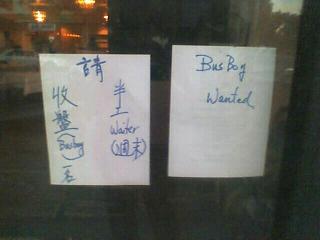 請
半工
Waiter
(週末)
收盤
(Busboy)
一名
BusBoy
Wanted